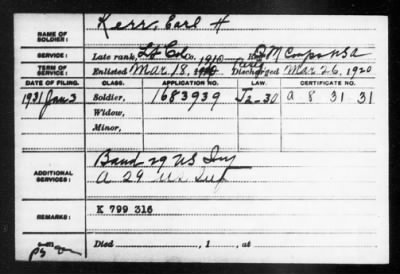 NAME OF SOLDIER: Kerr, Earl H
SERVICE: Late rank, Lt Col Co. , Reg't QM Corps USA
TERM OF SERVICE: Enlisted Mar 18, 1910 Discharged Mar 26, 1920
DATE OF FILING. CLASS. APPLICATION NO. LAW. CERTIFICATE NO.
1931 Jan 3 Soldier, 1683939 J2-30 a 8 31 31
Widow,
Minor,
ADDITIONAL SERVICES: Band 29 US Inf
A 29 US Inf
REMARKS: K 799 316
Died , 1 , at